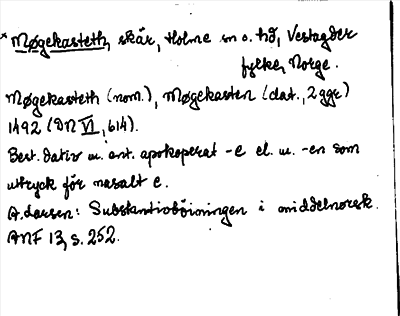 * Møgekasteth, skär, Holme sn o. hd, Vestagder
fylke, Norge.
Møgekasteth (nom.), Møgekasten (dat., 2 ggr)
1492 (DN VI, 614).
Best. dativ m. ant. apokoperat -e el. m. -en som
uttryck för nasalt e.
A. Larsen: Substantivböiningen i middelnorsk.
ANF 13, s. 252.